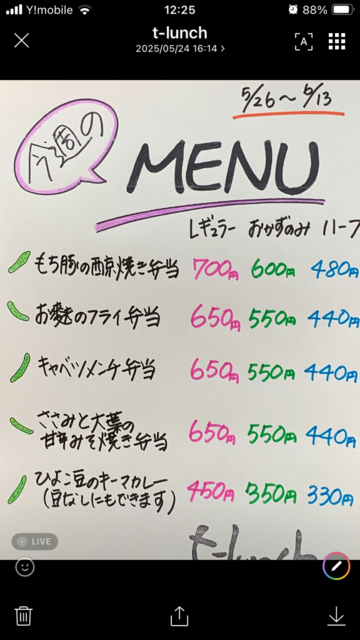 Y!mobile 12:25 88%
t-lunch
2025/05/24 16:14 >
A
5/26～6/13
今週の
MENU
レギュラー おかずのみ ハーフ
もち豚の西京焼き弁当 700円 600円 480円
フライ弁当 650円 550円 440円
キャベツメンチ弁当 650円 550円 440円
ささみと大葉の
甘辛みそ焼き弁当 650円 550円 440円
ひよこ豆のキーマカレー 450円 350円 330円
(豆なしにもできます)
LIVE
t-lunch